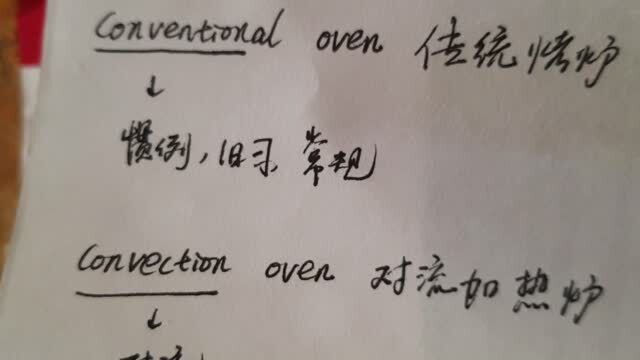 Conventional oven 传统烤炉
↓
惯例,旧习,常规
Convection oven 对流加热炉
↓